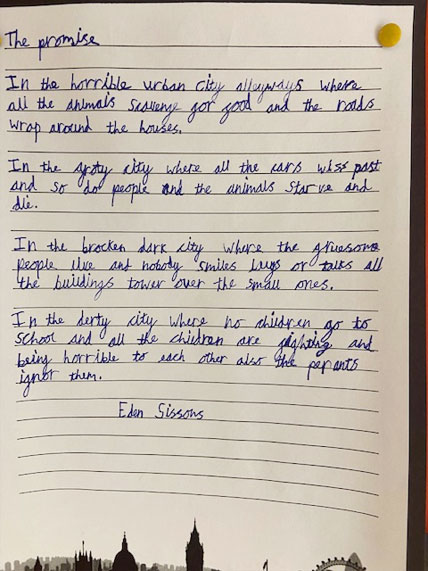 The promise
In the horrible urban city alluyways where
all the animals scavenge for food and the roads
wrap around the houses.
In the groty city where all the cars wiss past
and so do people and the animals starve and
die.
In the brocken dark city where the gruesome
people live and nobody smiles hugs or talks all
the buildings tower over the small ones.
In the derty city where no children go to
school and all the children are fighting and
being horrible to each other also the perants
ignor them.
Eden Sissons